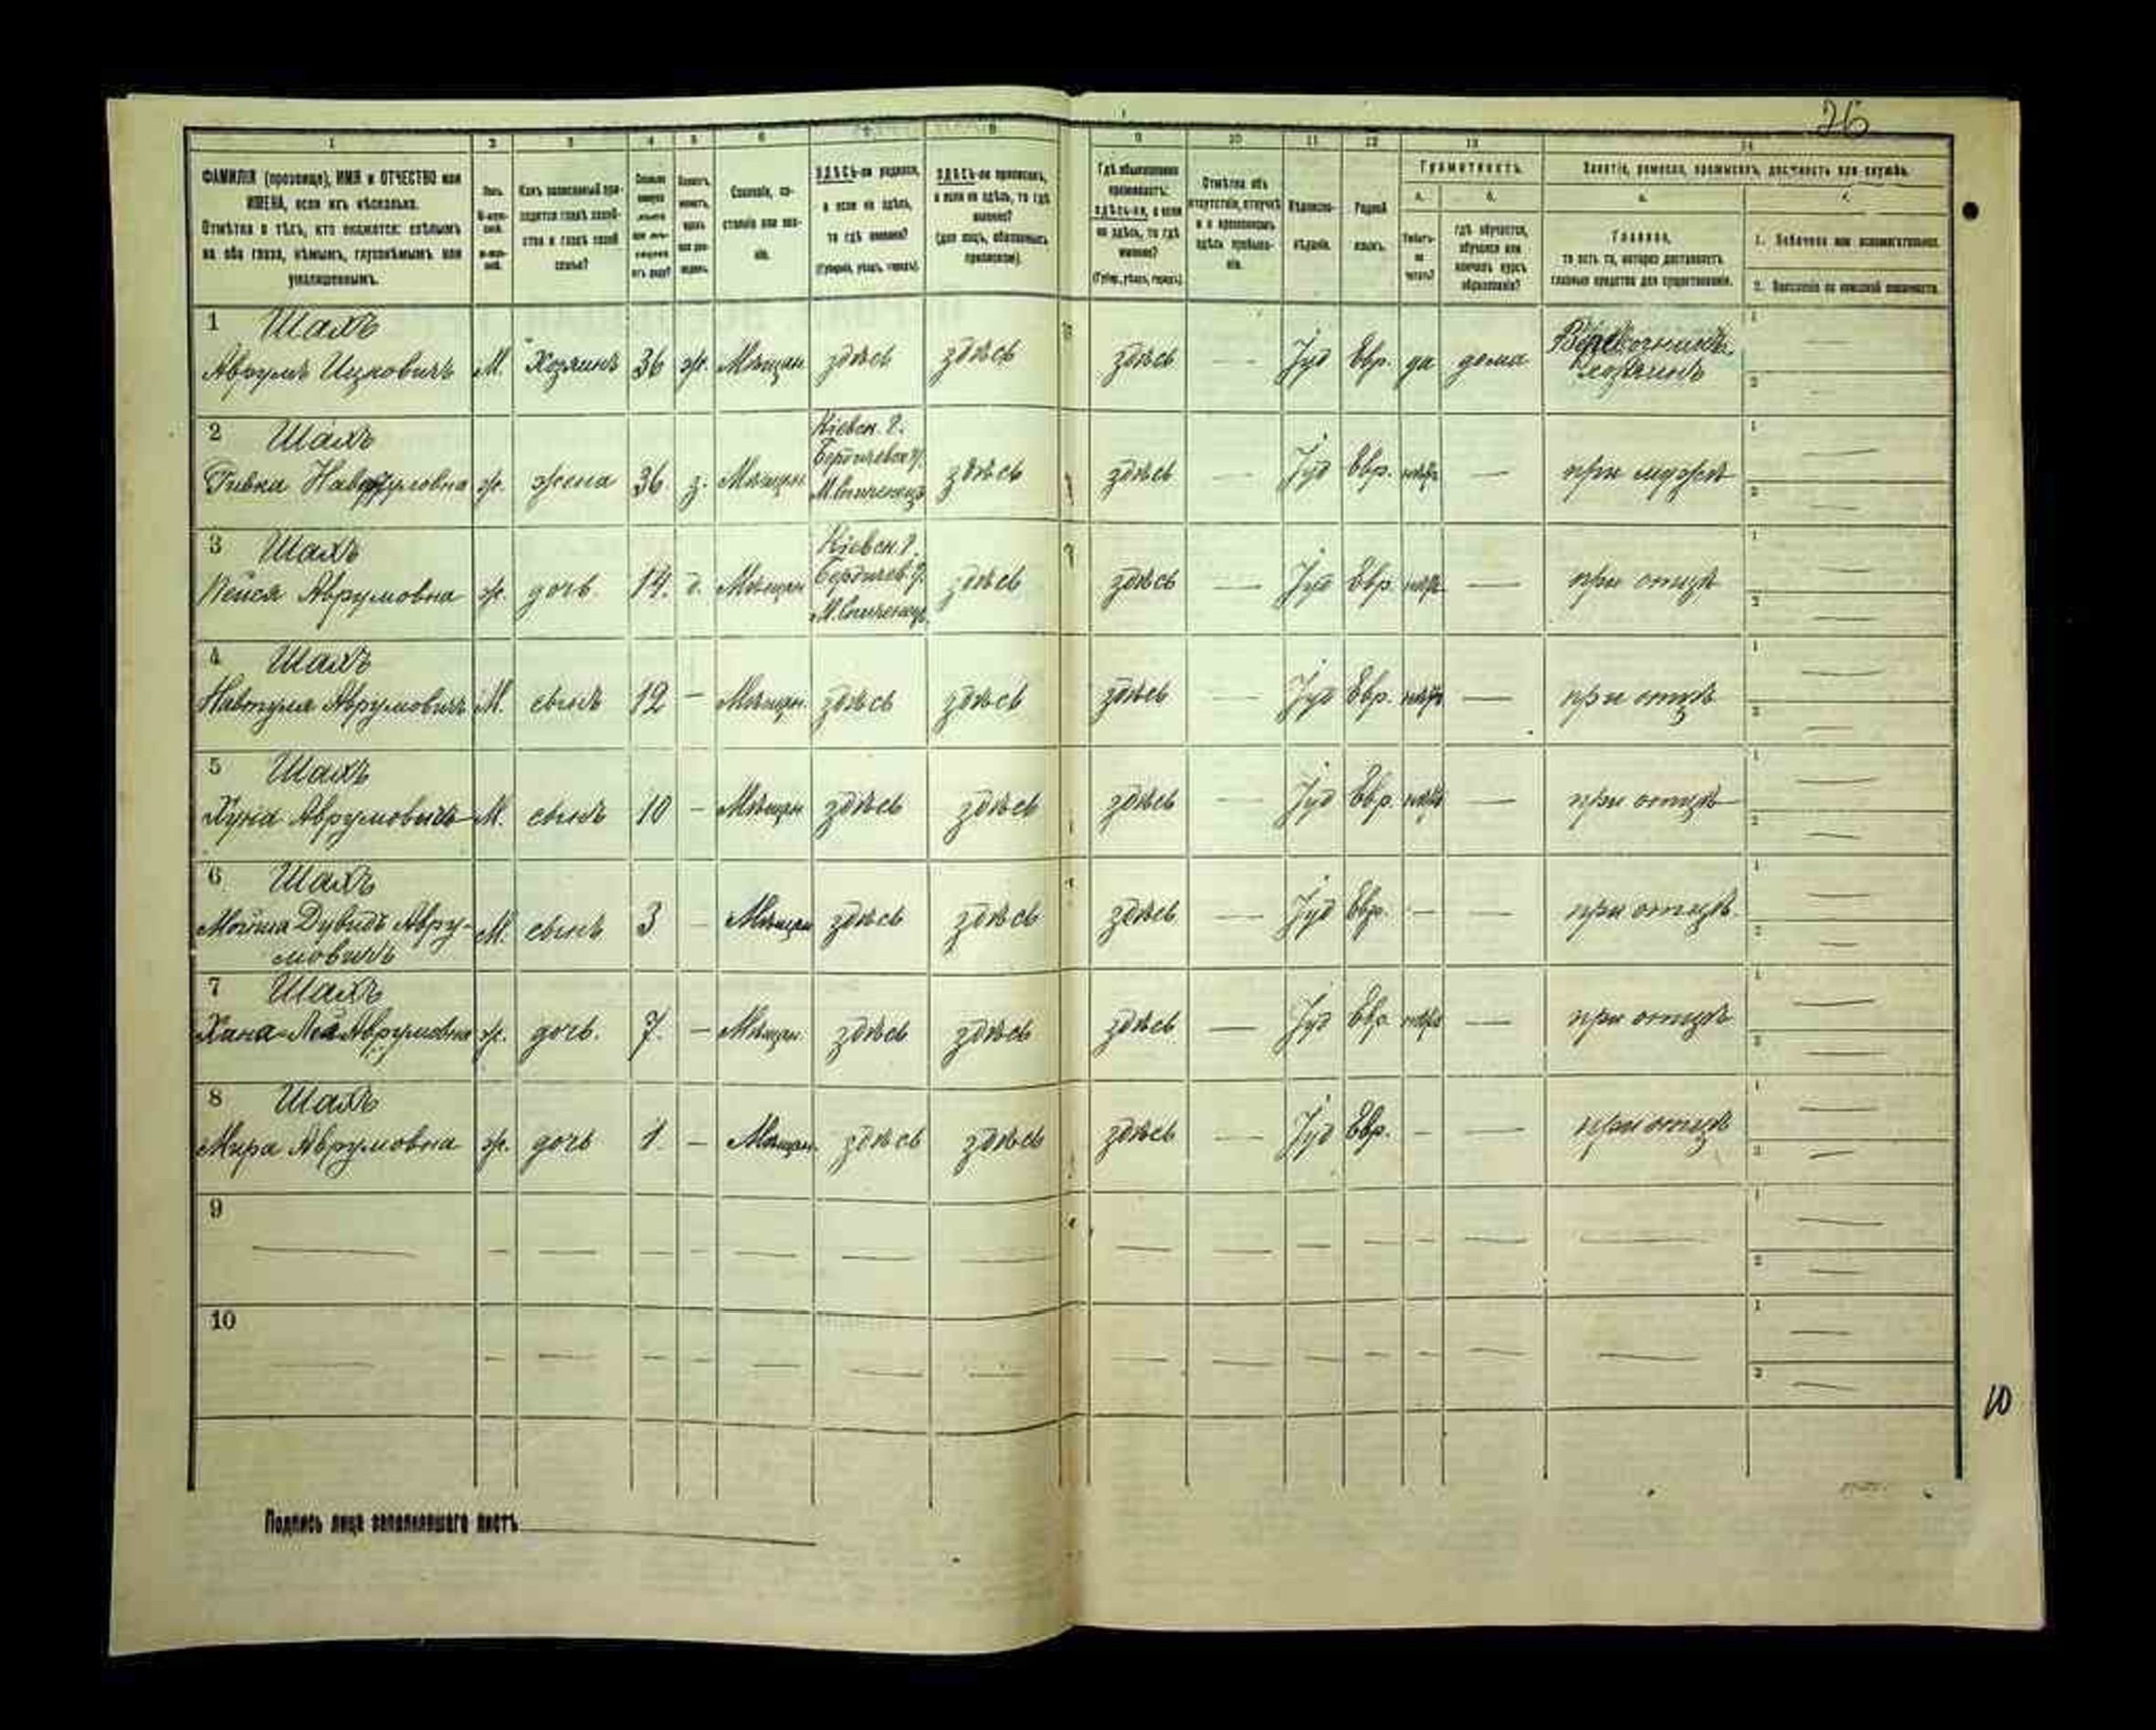 26
1 2 3 4 5 6 7 8 9 10 11 12 13 14
ФАМИЛІЯ (прозвище), ИМЯ и ОТЧЕСТВО или
ИМЕНА, если ихъ нѣсколько.
Отмѣтка о тѣхъ, кто окажется: слѣпымъ
на оба глаза, нѣмымъ, глухонѣмымъ или
умалишеннымъ.
Полъ.
Какъ записанный при-
ходится главѣ хозяй-
ства и главѣ своей
семьи?
Сословіе, со-
стояніе или зва-
ніе.
ЗДѢСЬ-ли родился,
а если не здѣсь,
то гдѣ именно?
(Губернія, уѣздъ, городъ).
ЗДѢСЬ-ли приписанъ,
а если не здѣсь, то гдѣ
именно?
(для лицъ, обязанныхъ
припискою).
Гдѣ обыкновенно
проживаетъ:
здѣсь-ли, а если
не здѣсь, то гдѣ
именно?
(Губер., уѣздъ, городъ).
Отмѣтка объ
отсутствіи, отлучкѣ
и о временномъ
здѣсь пребыва-
ніи.
Вѣроиспо-
вѣданіе.
Родной
языкъ.
Грамотность.
а. б.
Умѣетъ-
ли
читать?
гдѣ обучается,
обучался или
кончилъ курсъ
образованія?
Занятіе, ремесло, промыселъ, должность или служба.
Главное,
то есть то, которое доставляетъ
главныя средства для существованія.
1. Побочное или вспомогательное.
2. Положеніе по воинской повинности.
1 Шахъ
Аврумъ Ицковичъ М. Хозяинъ 36 ж. Мѣщан здѣсь здѣсь здѣсь — Іуд Евр. да дома хозяинъ
2 Шахъ Кіевск. г.
Бердичевск у.
Ривка ж. жена 36 з. Мѣщан здѣсь здѣсь — Іуд Евр. нѣтъ — при мужѣ
3 Шахъ Кіевск. г.
Бердичев. у.
Пейся Аврумовна ж. дочь 14. д. Мѣщан здѣсь здѣсь — Іуд Евр. нѣтъ — при отцѣ
4 Шахъ
Навтула Аврумовичъ М. сынъ 12 — Мѣщан. здѣсь здѣсь здѣсь — Іуд Евр. нѣтъ — при отцѣ
5 Шахъ
Хуна Аврумовичъ М. сынъ 10 — Мѣщан здѣсь здѣсь здѣсь — Іуд Евр. нѣтъ — при отцѣ
6 Шахъ
Мойша Дувидъ Авру- М. сынъ 3 — Мѣщан здѣсь здѣсь здѣсь — Іуд Евр. — — при отцѣ
мовичъ
7 Шахъ
Хана-Лея Аврумовна ж. дочь. 7. — Мѣщан. здѣсь здѣсь здѣсь — Іуд Евр. нѣтъ — при отцѣ
8 Шахъ
Мира Аврумовна ж. дочь 1. — Мѣщан. здѣсь здѣсь здѣсь — Іуд Евр. — — при отцѣ
9
10
10
Подпись лица заполнявшаго листъ